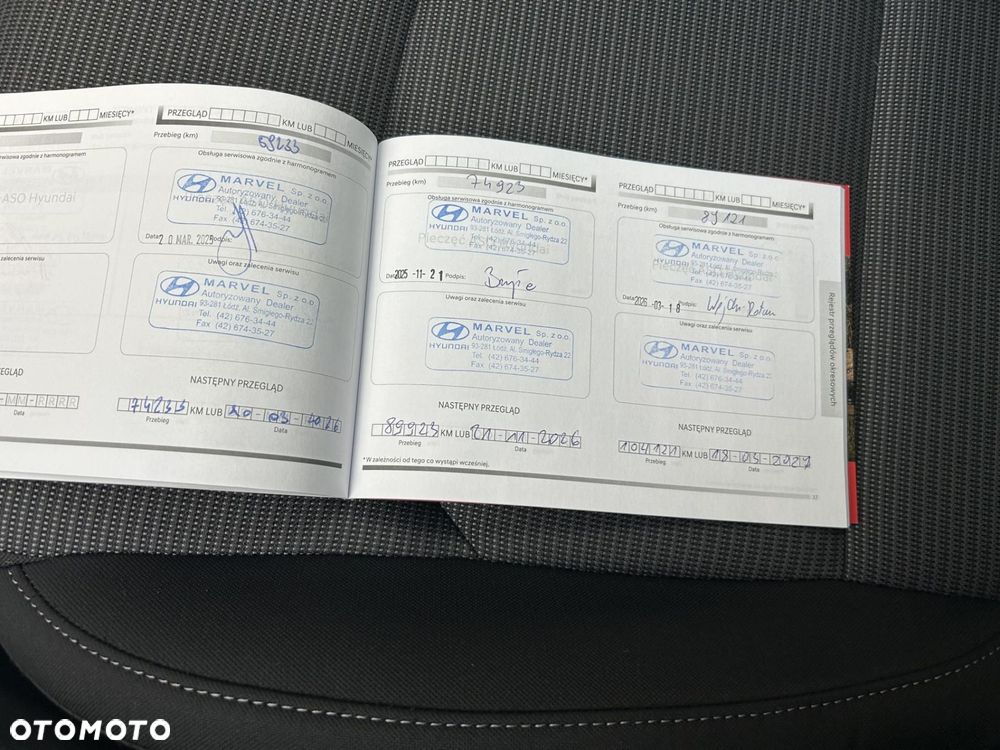 KM LUB MIESIĘCY*
serwisowa zgodnie z harmonogramem
ASO Hyundai
zalecenia serwisu
PRZEGLĄD
-MM-RRRR
Data
PRZEGLĄD KM LUB MIESIĘCY*
Przebieg (km) 59233
Obsługa serwisowa zgodnie z harmonogramem
HYUNDAI
MARVEL Sp. z o.o.
Autoryzowany Dealer
93-281 Łódź, Al. Śmigłego-Rydza 22
Tel. (42) 676-34-44
Fax (42) 674-35-27
Data 20 MAR. 2025 Podpis:
Uwagi oraz zalecenia serwisu
HYUNDAI
MARVEL Sp. z o.o.
Autoryzowany Dealer
93-281 Łódź, Al. Śmigłego-Rydza 22
Tel. (42) 676-34-44
Fax (42) 674-35-27
NASTĘPNY PRZEGLĄD
74233 KM LUB 20-03-2026
Przebieg Data
PRZEGLĄD KM LUB MIESIĘCY*
Przebieg (km) 74923
Obsługa serwisowa zgodnie z harmonogramem
Pieczęć ASO Hyundai
HYUNDAI
MARVEL Sp. z o.o.
Autoryzowany Dealer
93-281 Łódź, Al. Śmigłego-Rydza 22
Tel. (42) 676-34-44
Fax (42) 674-35-27
Data 2025-11-21 Podpis:
Uwagi oraz zalecenia serwisu
HYUNDAI
MARVEL Sp. z o.o.
Autoryzowany Dealer
93-281 Łódź, Al. Śmigłego-Rydza 22
Tel. (42) 676-34-44
Fax (42) 674-35-27
NASTĘPNY PRZEGLĄD
89923 KM LUB 21-11-2026
Przebieg Data
*W zależności od tego co wystąpi wcześniej.
PRZEGLĄD KM LUB MIESIĘCY*
Przebieg (km) 89121
Obsługa serwisowa zgodnie z harmonogramem
HYUNDAI
MARVEL Sp. z o.o.
Autoryzowany Dealer
93-281 Łódź, Al. Śmigłego-Rydza 22
Tel. (42) 676-34-44
Fax (42) 674-35-27
Data 2026-03-18 Podpis:
Uwagi oraz zalecenia serwisu
HYUNDAI
MARVEL Sp. z o.o.
Autoryzowany Dealer
93-281 Łódź, Al. Śmigłego-Rydza 22
Tel. (42) 676-34-44
Fax (42) 674-35-27
NASTĘPNY PRZEGLĄD
104121 KM LUB 18-03-2027
Przebieg Data
37
Rejestr przeglądów okresowych
OTOMOTO